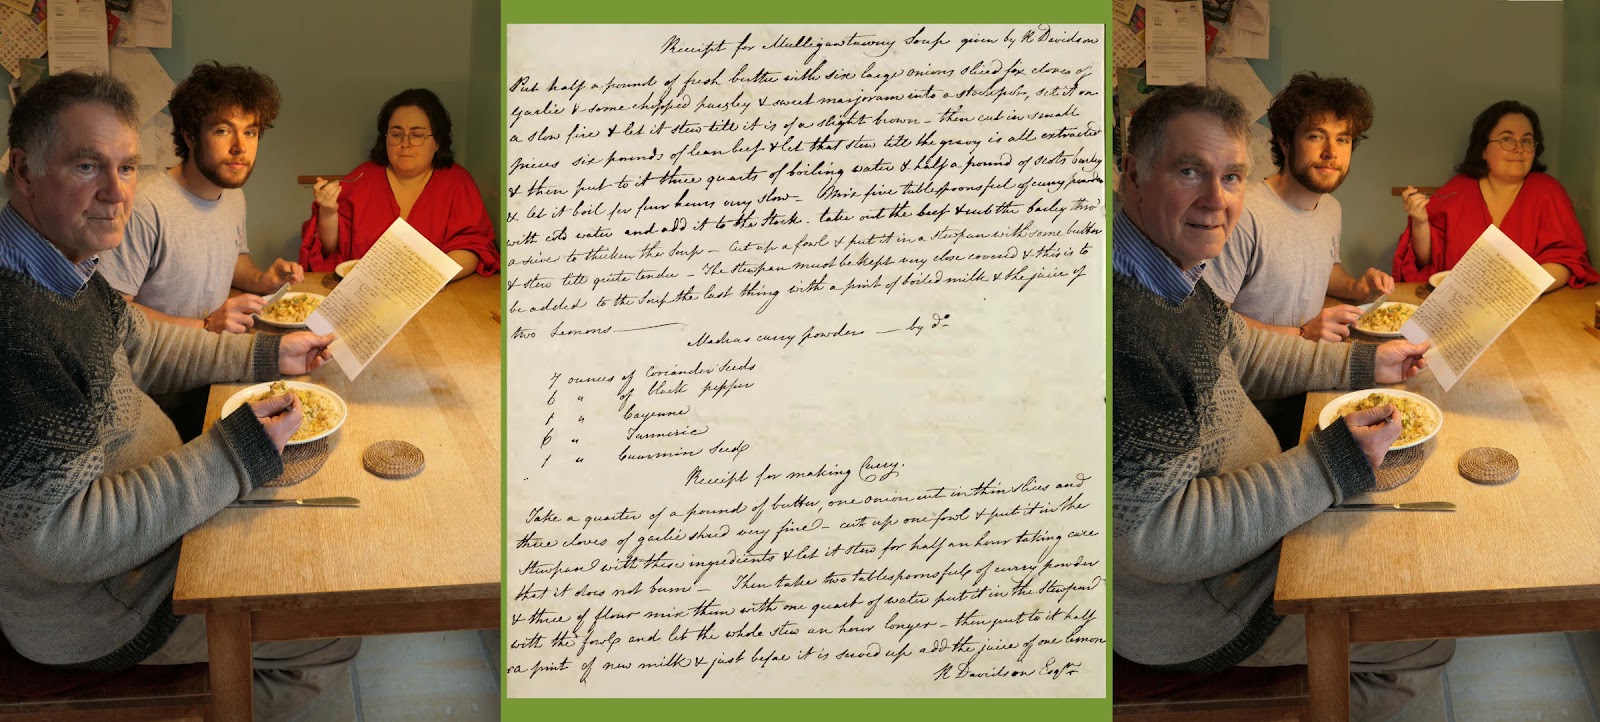 Receipt for Mulligawtawny Soup given by R Davidson
Put half a pound of fresh butter with six large onions sliced six cloves of
Garlic & some chopped parsley & sweet marjoram into a stewpan, set it on
a slow fire & let it stew till it is of a slight brown - then cut in small
pieces six pounds of lean beef & let that stew till the gravy is all extracted
& then put to it three quarts of boiling water & half a pound of Scots barley
& let it boil for four hours very slow - Mix five tablespoonsful of curry powder
with cold water and add it to the Stock - take out the beef & rub the barley thro'
a sive to thicken the Soup - Cut up a fowl & put it in a stewpan with some butter
& stew till quite tender - The stewpan must be kept very close covered & this is to
be added to the Soup the last thing with a pint of boiled milk & the juice of
two Lemons
Madras curry powder - by do
7 ounces of Coriander Seeds
6 " of black pepper
1 " Cayenne
6 " Turmeric
1 " Cuummin Seed
Receipt for making Curry.
Take a quarter of a pound of butter, one onion cut in thin slices and
three cloves of garlic shred very fine - cut up one fowl & put it in the
Stewpan with these ingredients & let it stew for half an hour taking care
that it does not burn - Then take two tablespoonsful of curry powder
& three of flour mix them with one quart of water put it in the stewpan
with the fowl and let the whole stew an hour longer - then put to it half
a pint of new milk & just before it is served up add the juice of one lemon
R Davidson Esqr